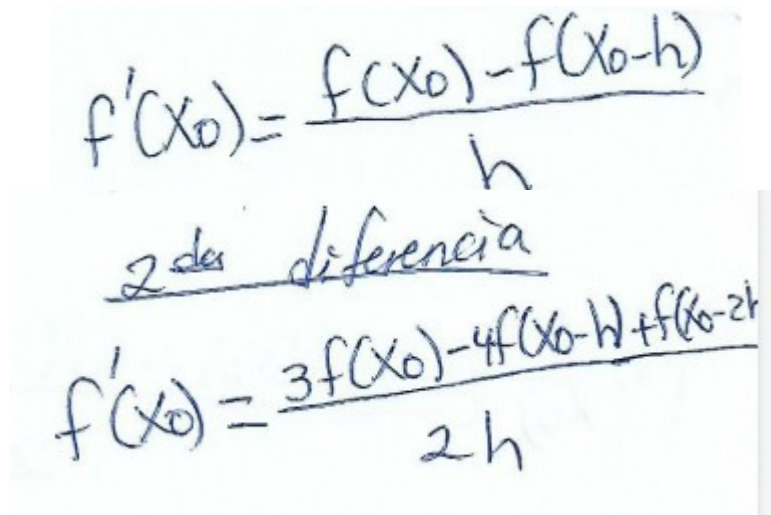 f'(x0) = f(x0) - f(x0-h)
h
2da diferencia
f'(x0) = 3f(x0) - 4f(x0-h) + f(x0-2h
2h